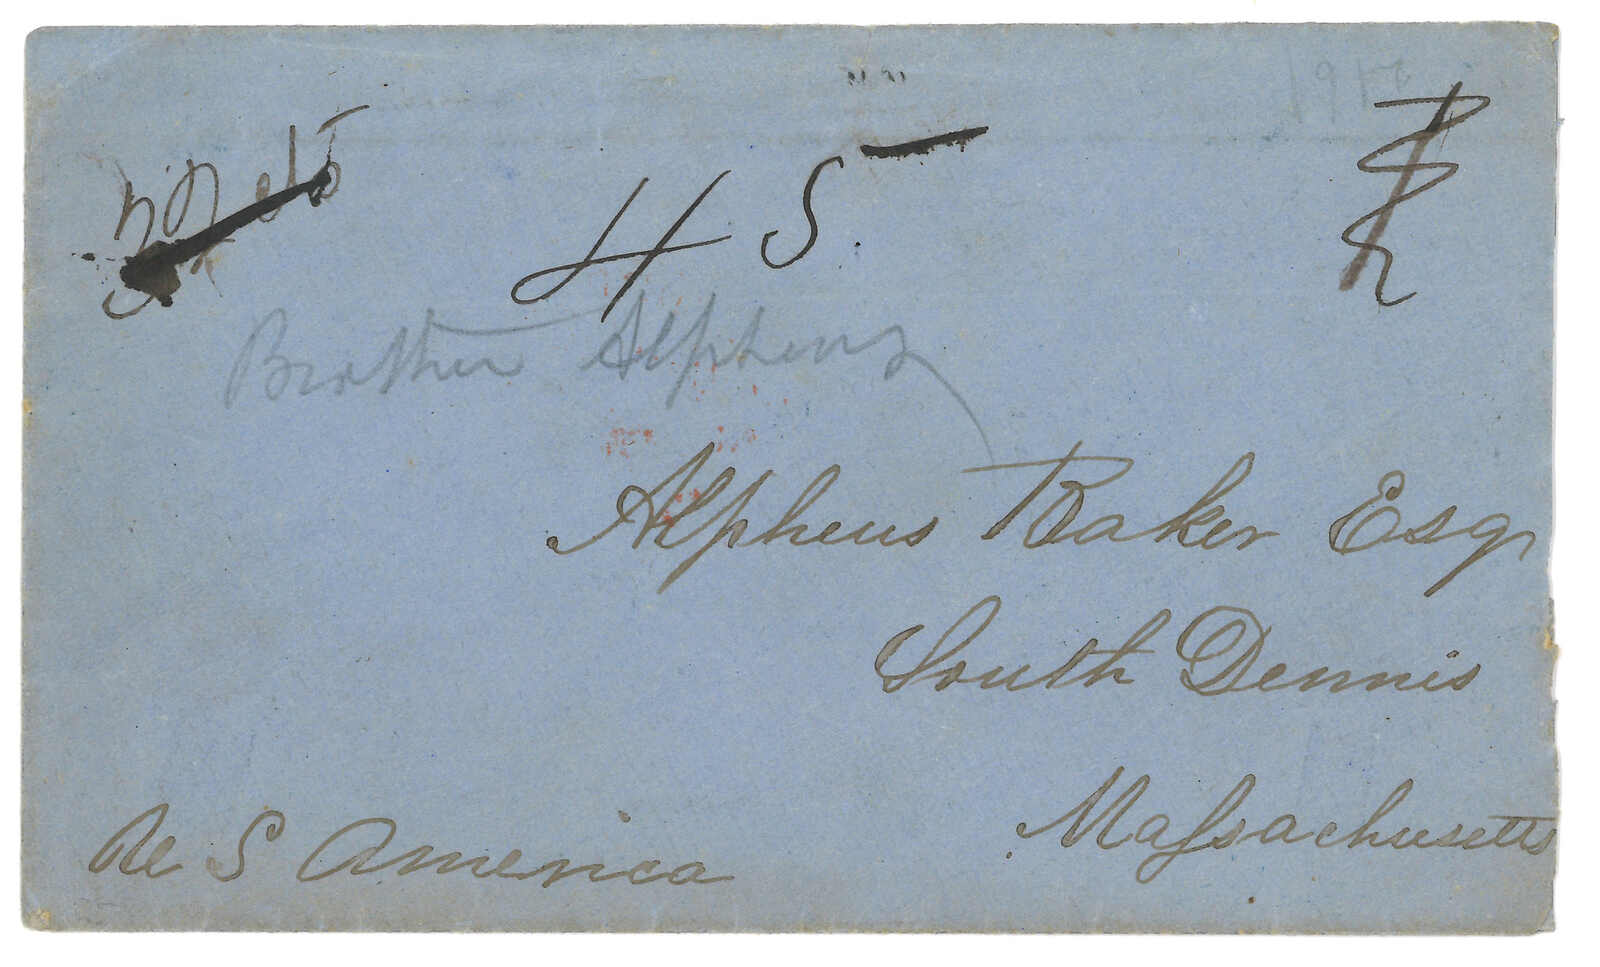 45
Brother Alpheus
Alpheus Baker Esqr
South Dennis
Massachusetts
U S America